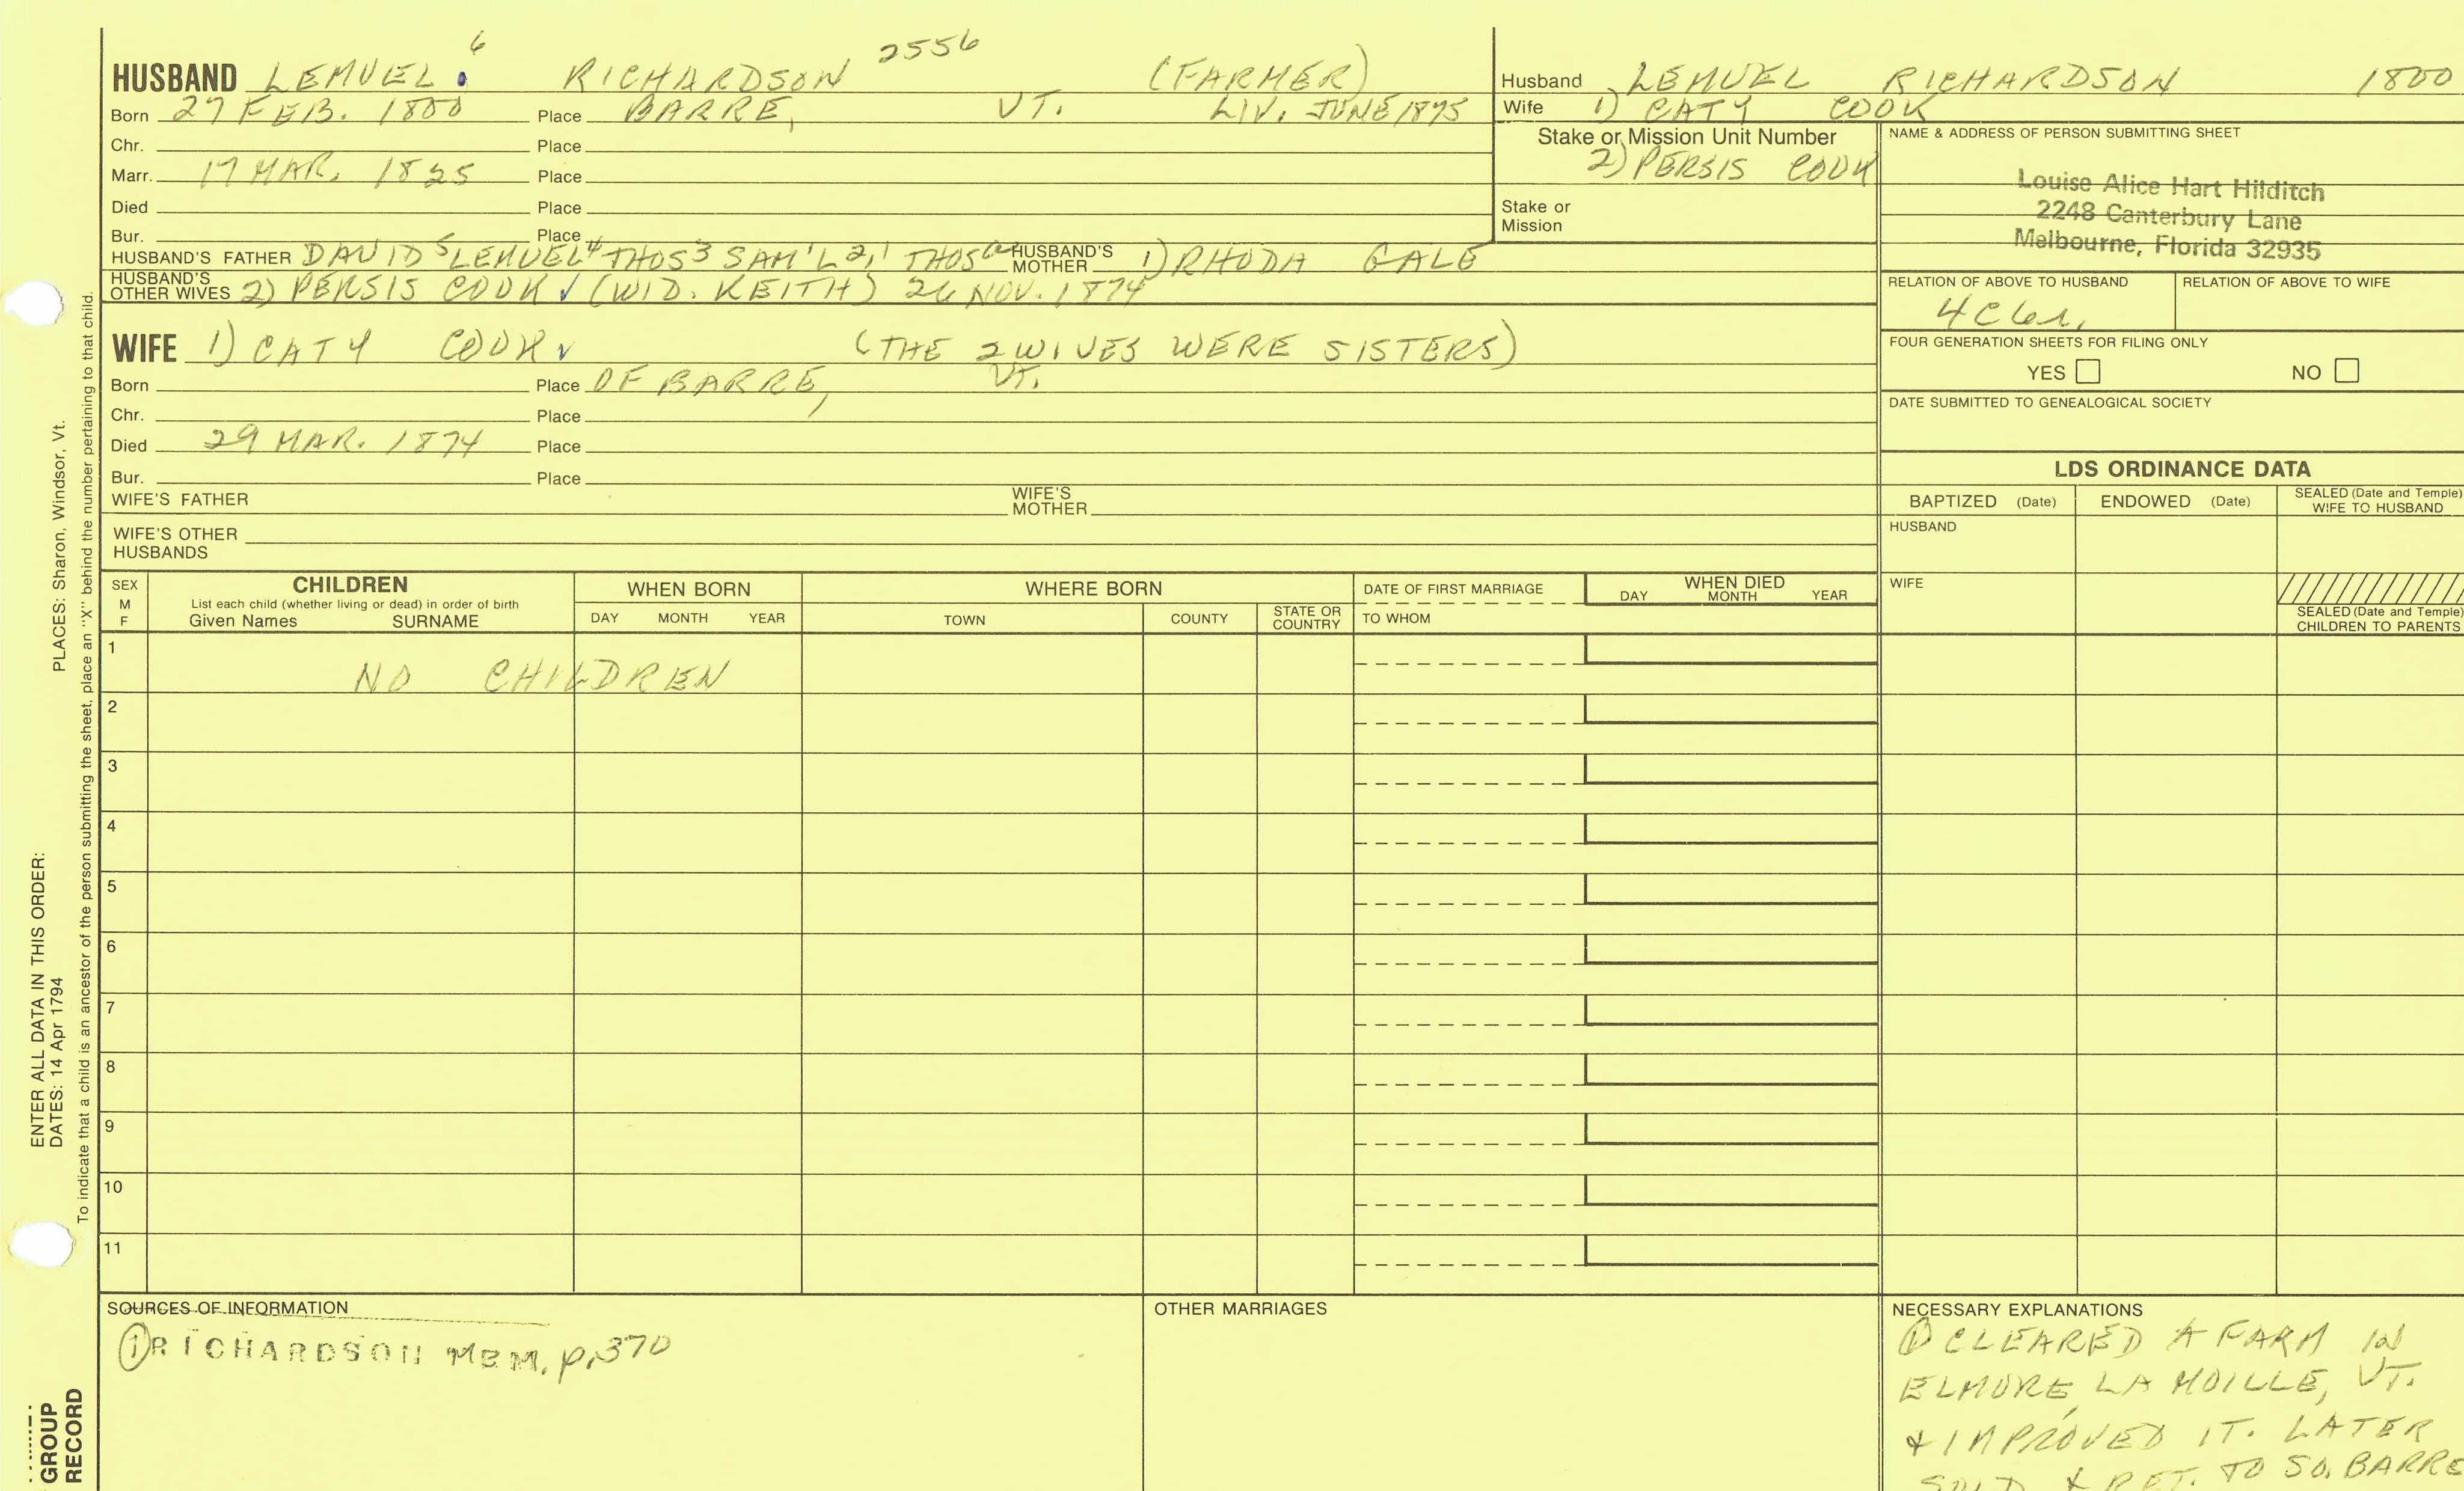 HUSBAND LEMUEL 6 RICHARDSON 2556 (FARMER)
Born 27 FEB. 1800 Place BARRE, VT. LIV. JUNE 1875
Chr. Place
Marr. 17 MAR. 1825 Place
Died Place
Bur. Place
HUSBAND'S FATHER DAVID 5 LEMUEL 4 THOS 3 SAM'L 2,1 THOS a HUSBAND'S MOTHER 1) RHODA GALE
HUSBAND'S OTHER WIVES 2) PERSIS COOK ✓ (WID. KEITH) 26 NOV. 1874
WIFE 1) CATY COOK ✓ (THE 2 WIVES WERE SISTERS)
Born Place OF BARRE, VT.
Chr. Place
Died 29 MAR. 1874 Place
Bur. Place
WIFE'S FATHER WIFE'S MOTHER
WIFE'S OTHER HUSBANDS
Husband LEMUEL RICHARDSON 1800
Wife 1) CATY COOK
Stake or Mission Unit Number
2) PERSIS COOK
Stake or Mission
NAME & ADDRESS OF PERSON SUBMITTING SHEET
Louise Alice Hart Hilditch
2248 Canterbury Lane
Melbourne, Florida 32935
RELATION OF ABOVE TO HUSBAND RELATION OF ABOVE TO WIFE
FOUR GENERATION SHEETS FOR FILING ONLY
YES NO
DATE SUBMITTED TO GENEALOGICAL SOCIETY
LDS ORDINANCE DATA
BAPTIZED (Date) ENDOWED (Date) SEALED (Date and Temple) WIFE TO HUSBAND
HUSBAND
WIFE
SEALED (Date and Temple) CHILDREN TO PARENTS
SEX M F
CHILDREN
List each child (whether living or dead) in order of birth
Given Names SURNAME
WHEN BORN
DAY MONTH YEAR
WHERE BORN
TOWN COUNTY STATE OR COUNTRY
DATE OF FIRST MARRIAGE
TO WHOM
WHEN DIED
DAY MONTH YEAR
1 NO CHILDREN
2
3
4
5
6
7
8
9
10
11
SOURCES OF INFORMATION
① RICHARDSON MEM. p. 370
OTHER MARRIAGES
NECESSARY EXPLANATIONS
① CLEARED A FARM IN
ELMORE, LA MOILLE, VT.
& IMPROVED IT. LATER
SOLD & RET. TO SO. BARRE
ENTER ALL DATA IN THIS ORDER:
DATES: 14 Apr 1794 PLACES: Sharon, Windsor, Vt.
To indicate that a child is an ancestor of the person submitting the sheet, place an "X" behind the number pertaining to that child.
GROUP
RECORD